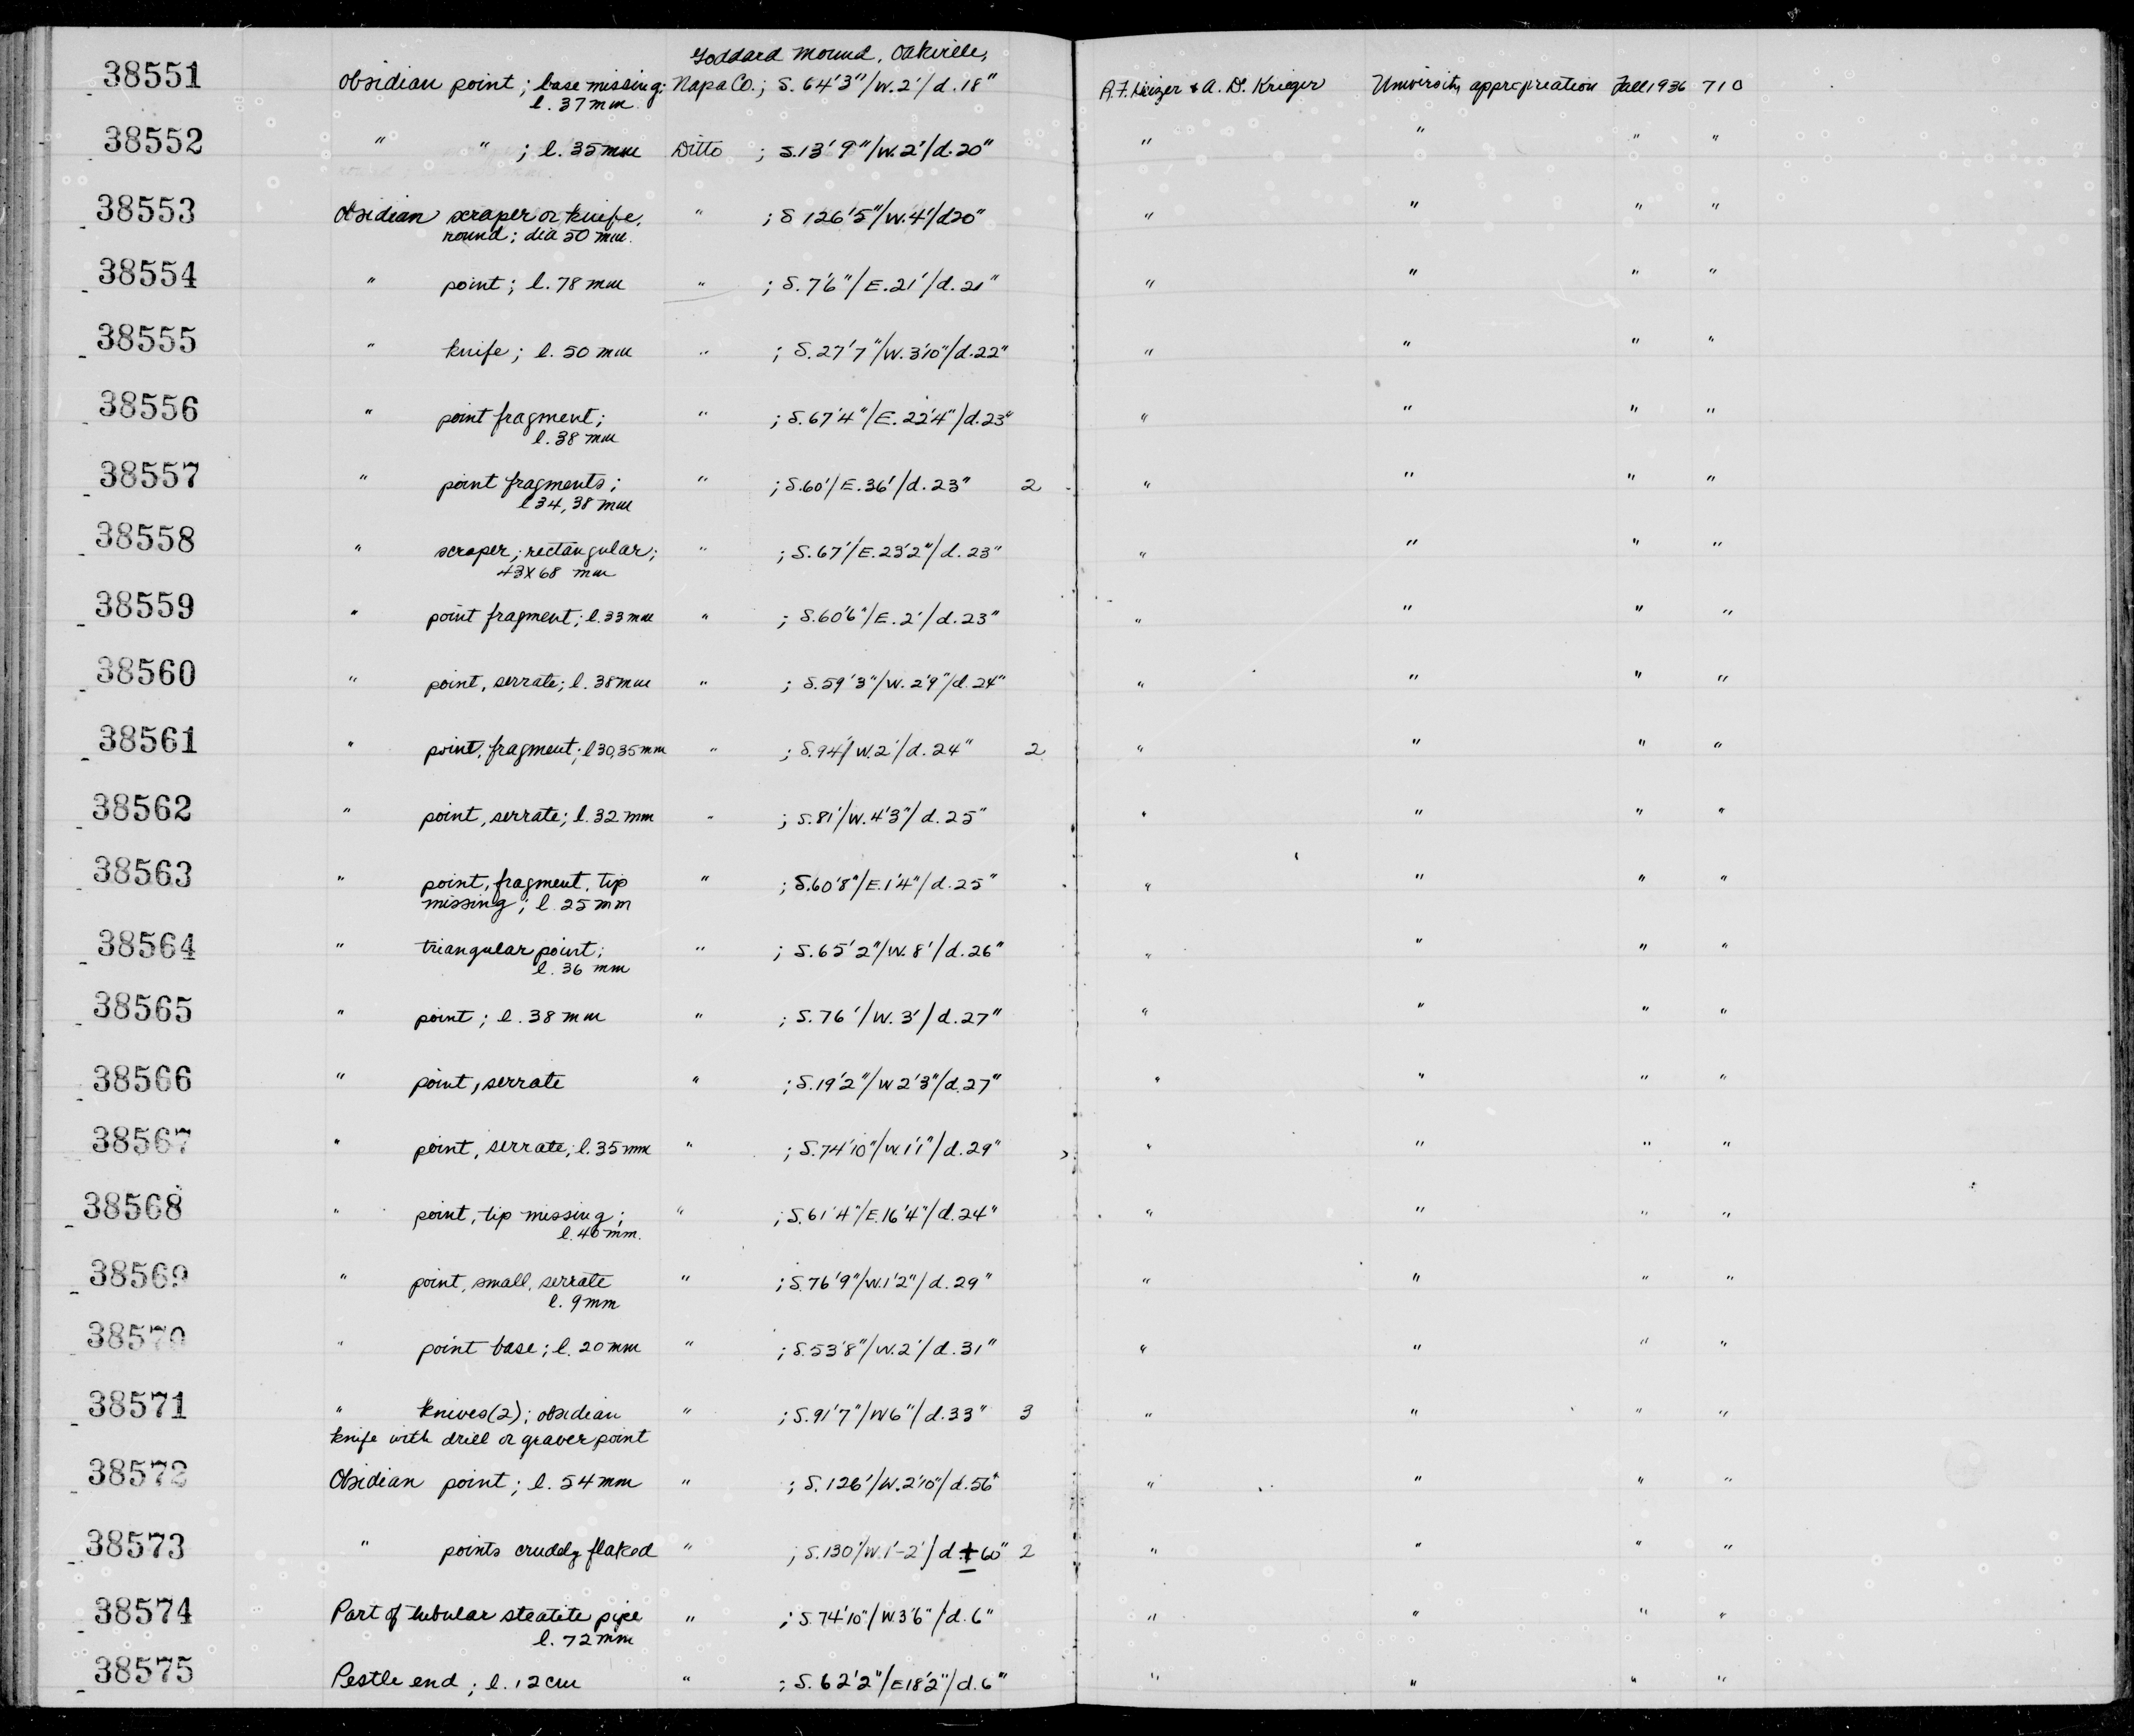 Goddard Mound, Oakville,
38551 Obsidian point; base missing; Napa Co.; S. 64'3"/W.2'/d.18" R.F. Heizer & A. D. Krieger University appropriation Fall 1936 710
l. 37 mm.
38552 " " ; l. 35 mm Ditto ; S.13'9"/W.2'/d.20" " " " "
38553 Obsidian scraper or knife, " ; S 126'5"/W.4'/d20" " " " "
round; dia 50 mm.
38554 " point; l. 78 mm " ; S. 7'6"/E.21'/d.21" " " " "
38555 " knife; l. 50 mm " ; S.27'7"/W.3'10"/d.22" " " " "
38556 " point fragment; " ; S.67'4"/E.22'4"/d.23" " " " "
l. 38 mm
38557 " point fragments; " ; S.60'/E.36'/d.23" 2 " " " "
l 34, 38 mm
38558 " scraper; rectangular; " ; S.67'/E.23'2"/d.23" " " " "
43X68 mm
38559 " point fragment; l.33 mm " ; S.60'6"/E.2'/d.23" " " " "
38560 " point, serrate; l. 38mm " ; S.59'3"/W.2'9"/d.24" " " " "
38561 " point, fragment; l 30,35mm " ; S.94'/W.2'/d.24" 2 " " " "
38562 " point, serrate; l. 32 mm " ; S.81'/W.4'3"/d.25" " " " "
38563 " point, fragment, tip " ; S.60'8"/E.1'4"/d.25" " " " "
missing; l. 25 mm
38564 " triangular point; " ; S.65'2"/W.8'/d.26" " " " "
l. 36 mm
38565 " point; l. 38 mm " ; S.76'/W.3'/d.27" " " " "
38566 " point, serrate " ; S.19'2"/W 2'3"/d.27" " " " "
38567 " point, serrate; l.35 mm " ; S.74'10"/W.1'1"/d.29" " " " "
38568 " point, tip missing; " ; S.61'4"/E.16'4"/d.24" " " " "
l. 40 mm.
38569 " point, small, serrate " ; S.76'9"/W.1'2"/d.29" " " " "
l. 9 mm
38570 " point base; l. 20 mm " ; S.53'8"/W.2'/d.31" " " " "
38571 " knives(2); obsidian " ; S.91'7"/W6"/d.33" 3 " " " "
knife with drill or graver point
38572 Obsidian point; l. 54 mm " ; S.126'/W.2'10"/d.56" " " " "
38573 " points crudely flaked " ; S.130'/W.1'-2'/d.±60" 2 " " " "
38574 Part of tubular steatite pipe " ; S.74'10"/W.3'6"/d.6" " " " "
l. 72 mm
38575 Pestle end; l. 12 cm " ; S. 62'2"/E18'2"/d.6" " " " "